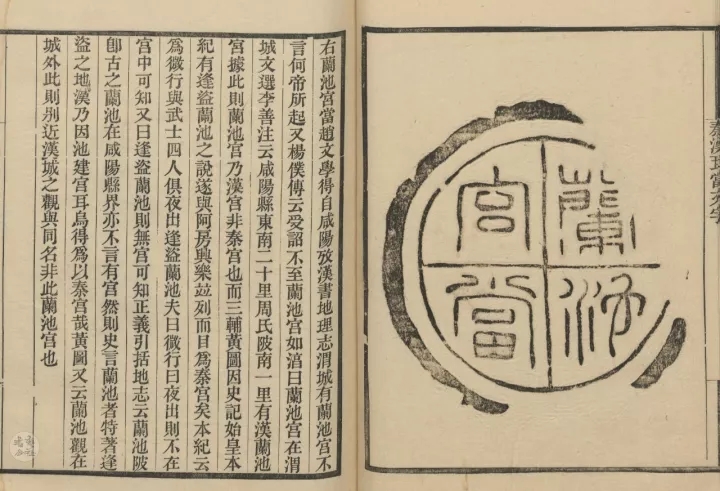 秦漢瓦當文字
蘭池
宮當
右蘭池宮當趙文學得自咸陽攷漢書地理志渭城有蘭池宮不
言何帝所起又楊僕傳云受詔不至蘭池宮如湻曰蘭池宮在渭
城文選李善注云咸陽縣東南二十里周氏陂南一里有漢蘭池
宮據此則蘭池宮乃漢宮非秦宮也而三輔黃圖因史記始皇本
紀有逢盜蘭池之說遂與阿房興樂竝列而目爲秦宮矣本紀云
爲微行與武士四人俱夜出逢盜蘭池夫曰微行曰夜出則不在
宮中可知又曰逢盜蘭池則無宮可知正義引括地志云蘭池陂
卽古之蘭池在咸陽縣界亦不言有宮然則史言蘭池者特著逢
盜之地漢乃因池建宮耳烏得爲以秦宮哉黃圖又云蘭池觀在
城外此則別近漢城之觀與同名非此蘭池宮也